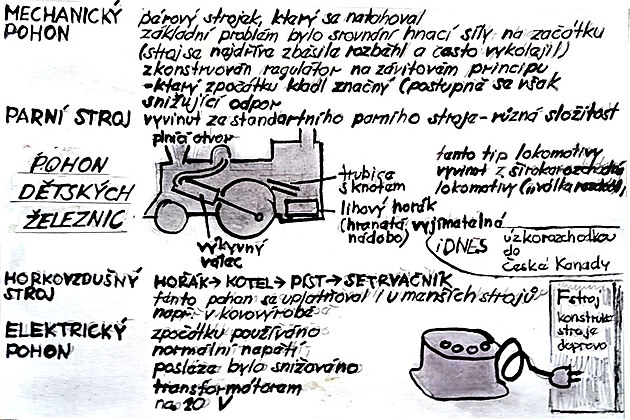 MECHANICKÝ POHON
pérový strojek, který se natahoval
základní problém bylo srovnání hnací síly na začátku
(stroj se nejdříve zběsile rozběhl a často vykolejil)
zkonstruován regulátor na závitovém principu
-který zpočátku kladl značný (postupně se však
snižující odpor
PARNÍ STROJ
vyvinut ze standartního parního stroje-různá složitost
plnicí otvor
POHON
DĚTSKÝCH
ŽELEZNIC
trubice
s knotem
lihový horák
(hranatá vyjímatelná
nádoba)
výkyvný
válec
tento typ lokomotivy
vyvinut z širokorozchodné
lokomotivy
iDNES
úzkorozchodkou
do
České Kanady
HORKOVZDUŠNÝ
STROJ
HOŘÁK→KOTEL→PÍST→SETRVAČNÍK
tento pohon se uplatňoval i u menších strojů
např. v kovovýrobě
ELEKTRICKÝ
POHON
zpočátku používáno
normální napětí
posléze bylo snižováno
transformátorem
na 20 V
stroj
stroje